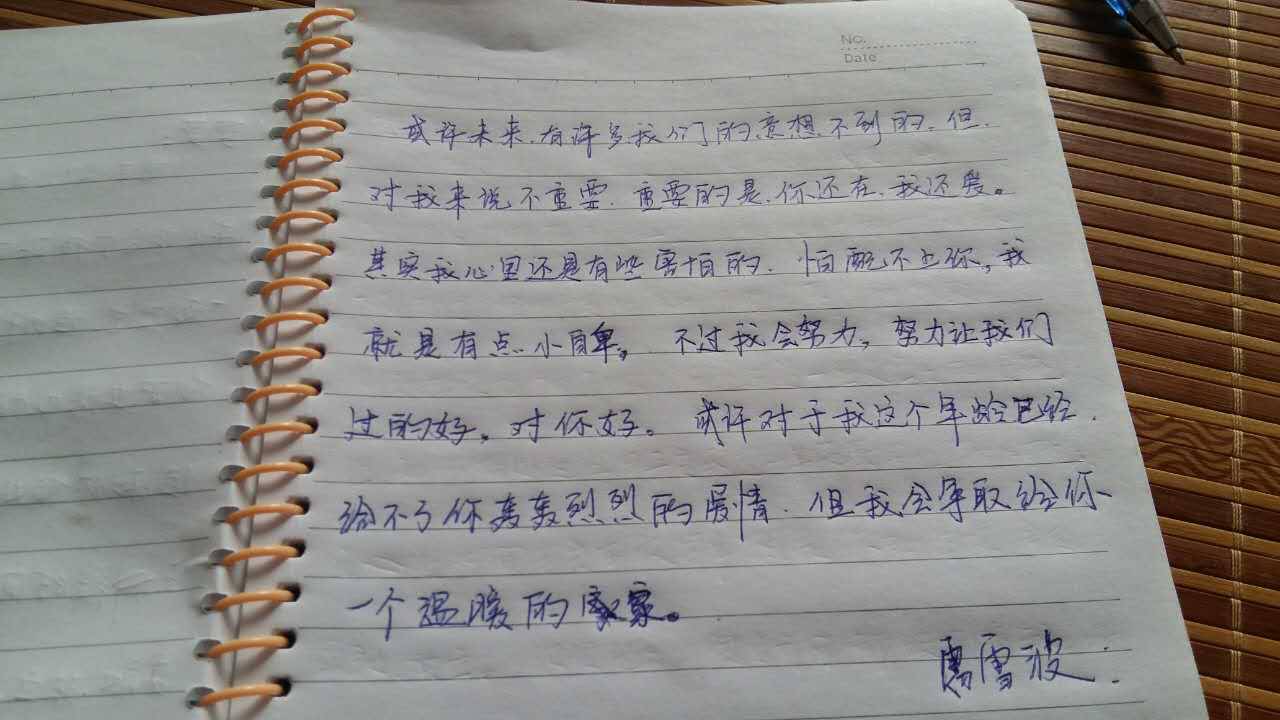 No.
Date
或许未来.有许多我们的意想不到的.但.
对我来说不重要.重要的是.你还在.我还爱。
其实我心里还是有些害怕的.怕配不上你。我
就是有点小自卑。不过我会努力。努力让我们
过的好。对你好。或许对于我这个年龄已经.
给不了你轰轰烈烈的爱情.但我会争取给你
一个温暖的家。
雪波.